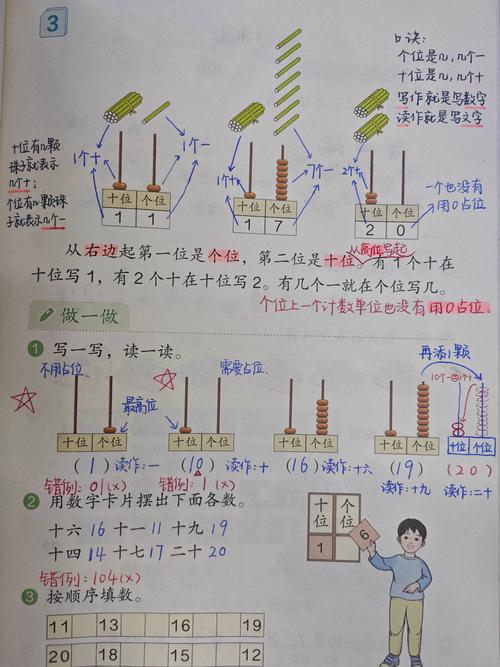 3
口诀:
个位是几,几个一
十位是几,几个十
写作就是写数字
读作就是写文字
十位有几颗
珠子就表示
几个十;
个位有几颗珠
子就表示几个一
1个十
1个一
十位 个位
1 1
1个十
7个一
十位 个位
1 7
2个十
一个也没有
用0占位
十位 个位
2 0
从高位写起
从右边起第一位是个位,第二位是十位。有1个十在
十位写1,有2个十在十位写2。有几个一就在个位写几。
个位上一个计数单位也没有用0占位.
做一做
1 写一写,读一读。
再添1颗
不用占位.
需要占位.
最高位
10个一=1个十
十位 个位
十位 个位
十位 个位
十位 个位
十位 个位
(1)读作:一
(10)读作:十
(16)读作:十六
(19)
(20)
读作:十九
读作:二十
错例:01(x)
错例:1(x)
2 用数字卡片摆出下面各数。
十六 16 十一 11 十九 19
十四 14 十七 17 二十 20
错例:104(x)
十位 个位
1 6
3 按顺序填数。
11 13 16 19
20 18 15 12